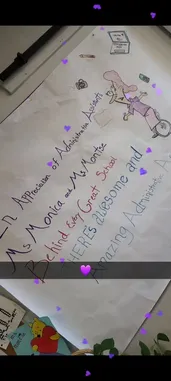 In Appreciation of Administrative Assistants
Ms. Monica and Ms Montse
Behind Every Great School
HERE's awesome and
Amazing Administrative A